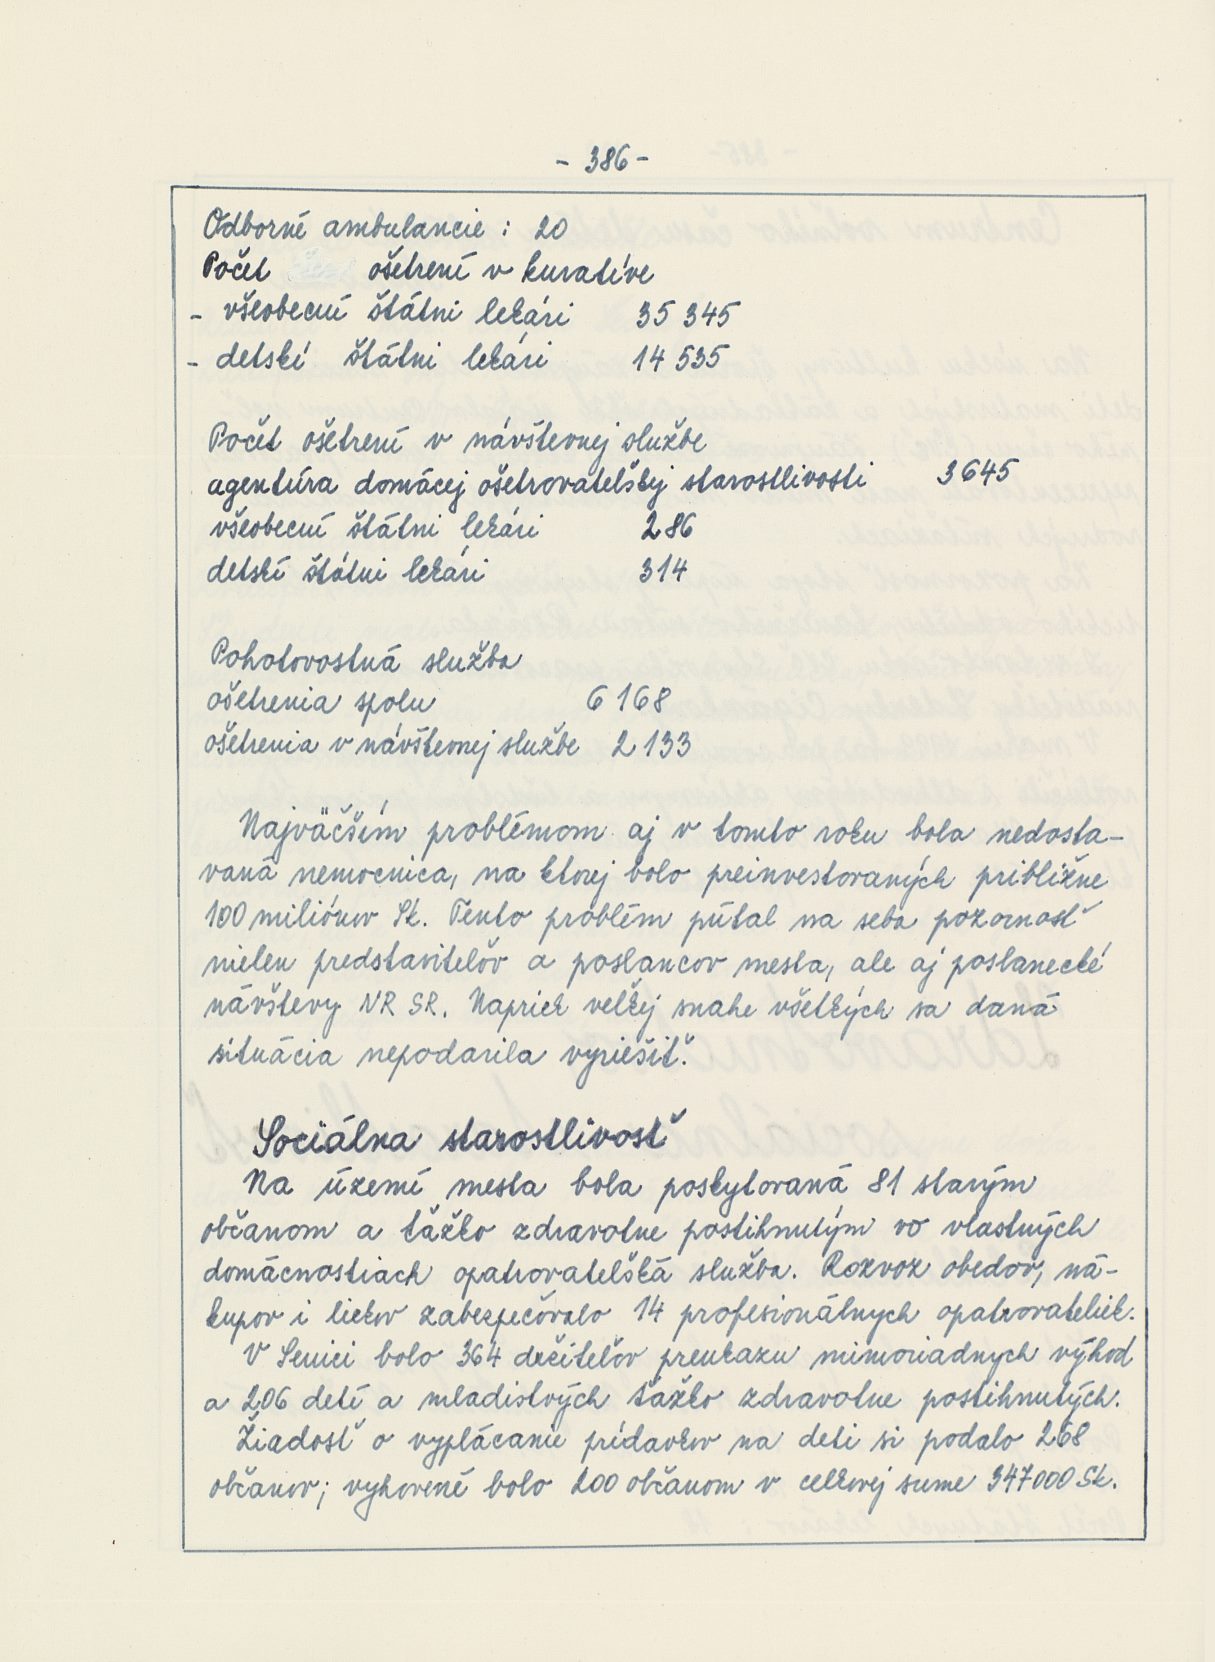 - 386 -
Odborné ambulancie : 20
Počet ošetrení v kuratíve
- všeobecní štátni lekári 35 345
- detskí štátni lekári 14 535
Počet ošetrení v návštevnej službe
agentúra domácej ošetrovateľskej starostlivosti 3645
všeobecní štátni lekári 286
detskí štátni lekári 314
Pohotovostná služba
ošetrenia spolu 6 168
ošetrenia v návštevnej službe 2 133
Najväčším problémom aj v tomto roku bola nedosta-
vaná nemocnica, na ktorej bolo preinvestovaných približne
100 miliónov Sk. Tento problém pútal na seba pozornosť
nielen predstaviteľov a poslancov mesta, ale aj poslanecké
návštevy NR SR. Napriek veľkej snahe všetkých sa daná
situácia nepodarila vyriešiť.
Sociálna starostlivosť
Na území mesta bola poskytovaná 81 starým
občanom a ťažko zdravotne postihnutým vo vlastných
domácnostiach opatrovateľská služba. Rozvoz obedov, ná-
kupov i liekov zabezpečovalo 14 profesionálnych opatrovateliek.
V Senici bolo 364 držiteľov preukazu mimoriadnych výhod
a 206 detí a mladistvých ťažko zdravotne postihnutých.
Žiadosť o vyplácanie prídavkov na deti si podalo 268
občanov; vyhovené bolo 200 občanom v celkovej sume 347000 Sk.